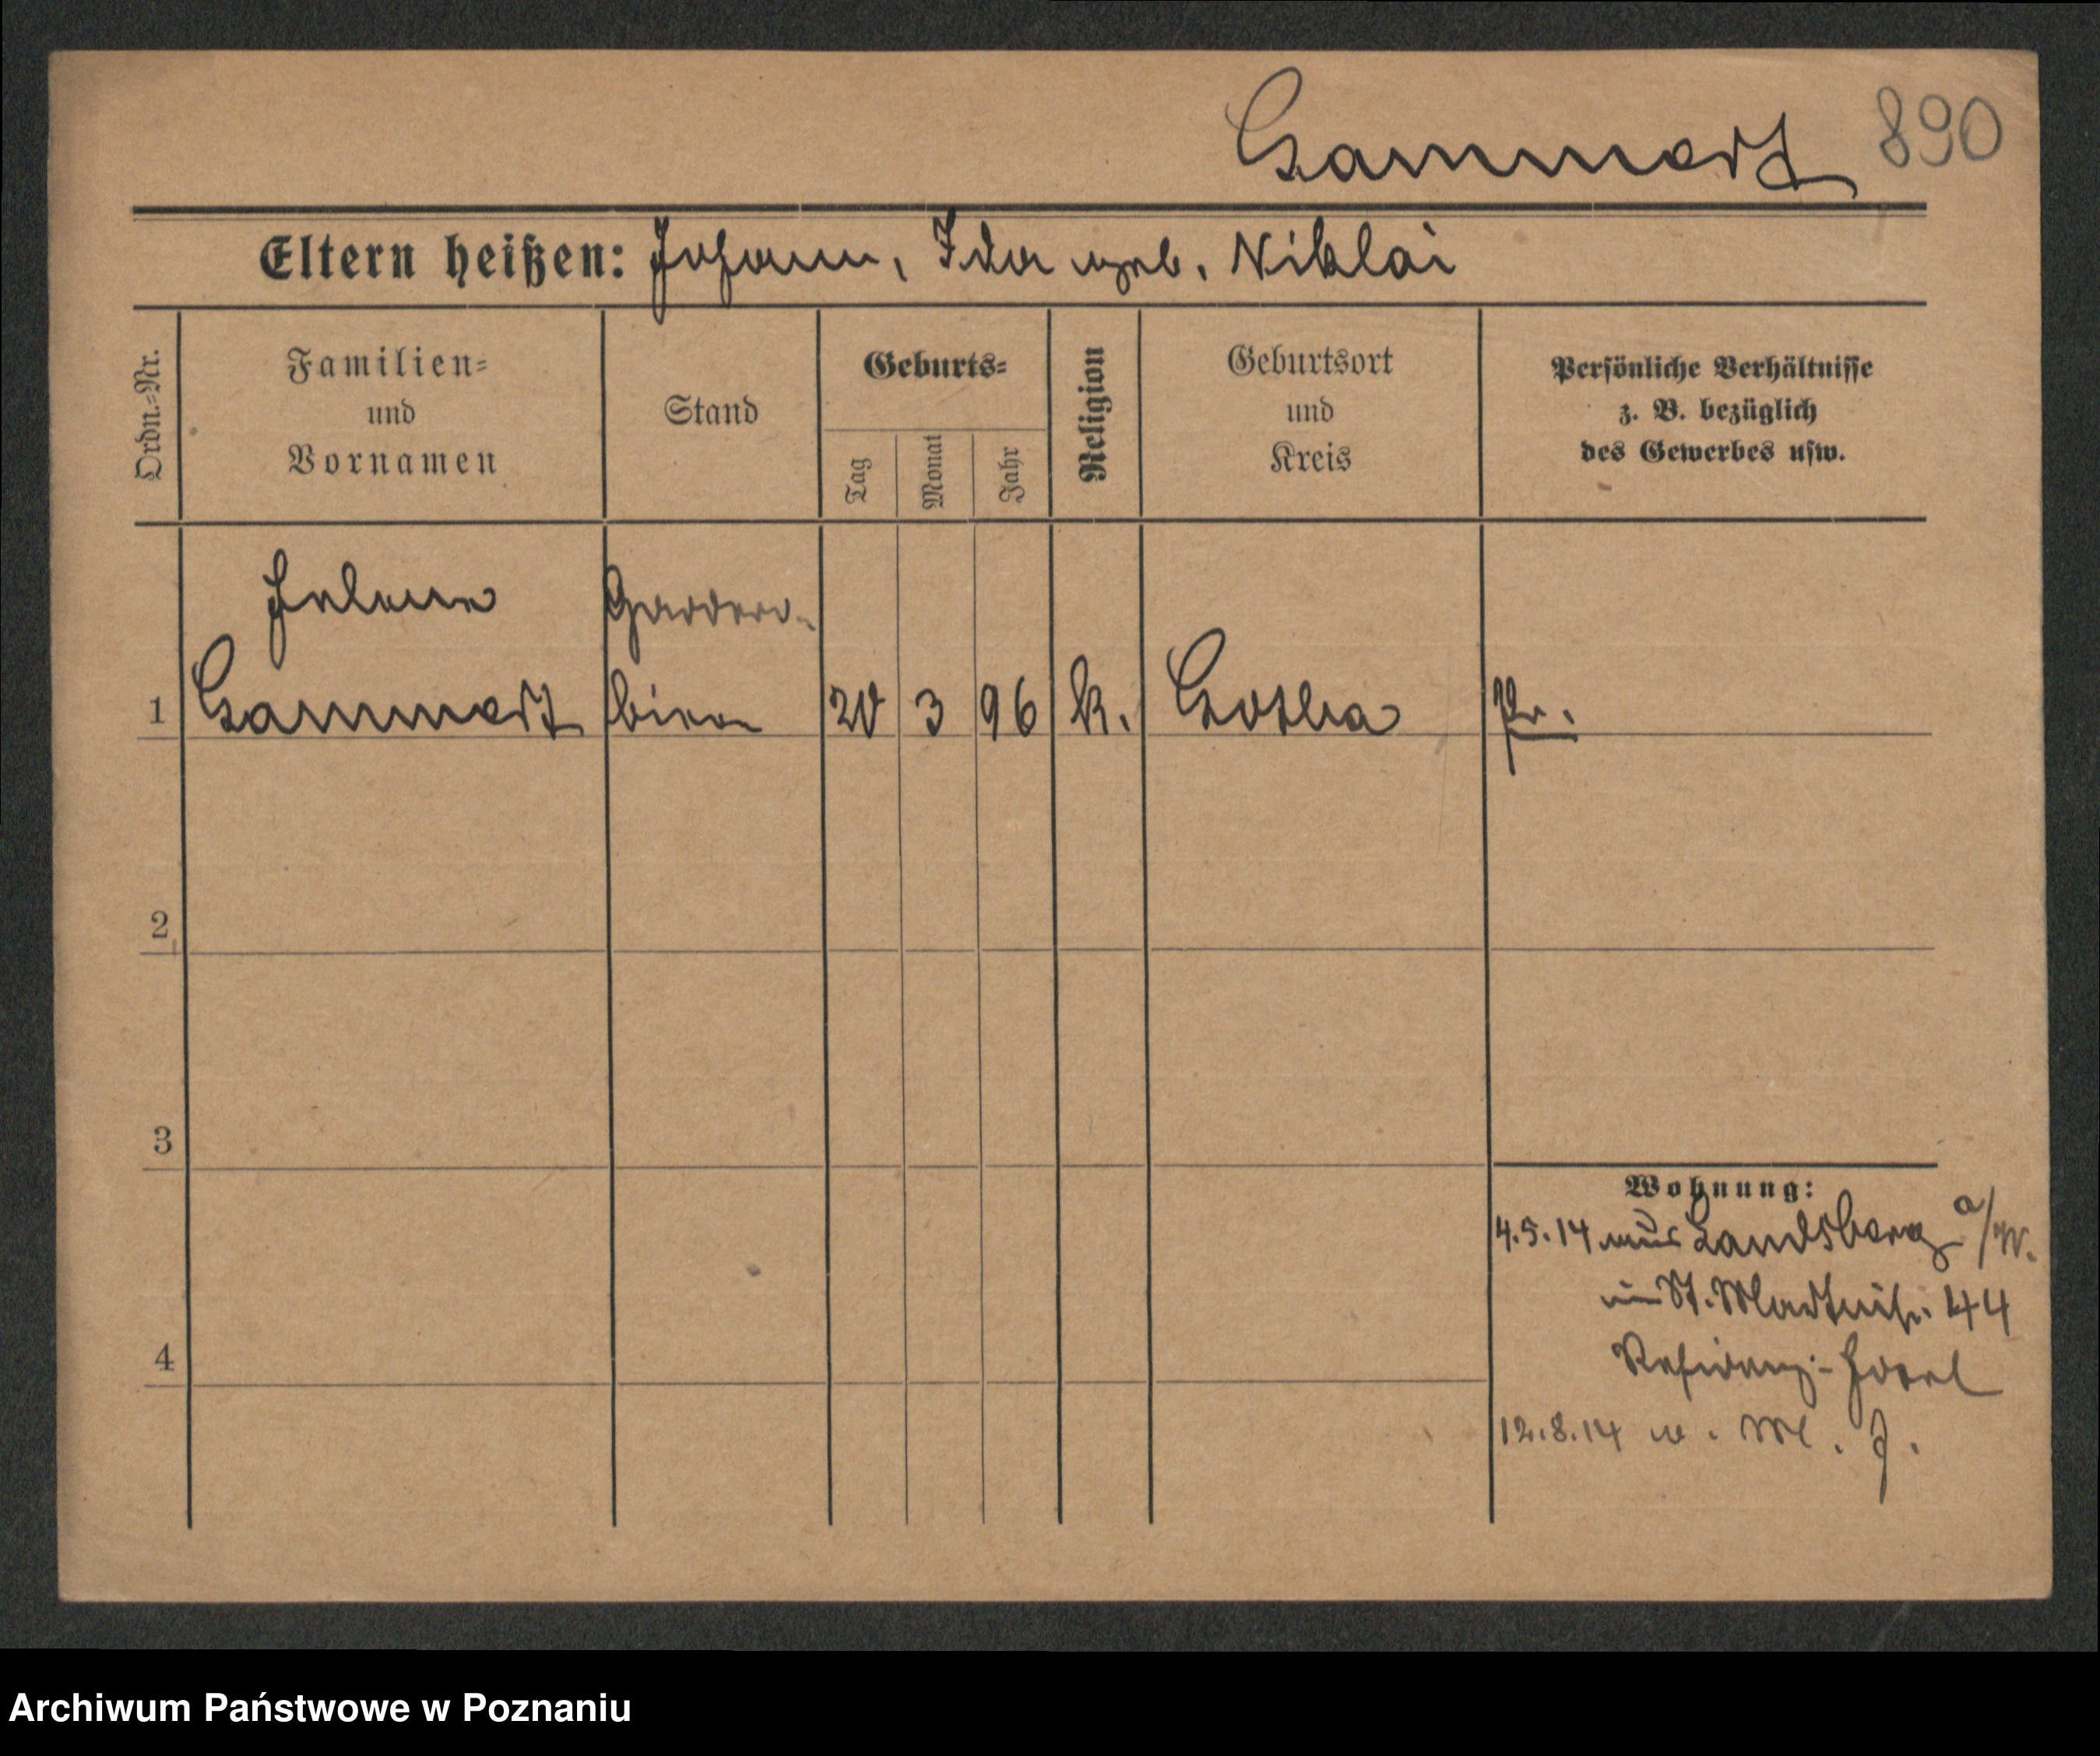 Gammert 890
Eltern heißen: Johann, Ida geb. Niklai
Ordn.-Nr.
Familien-
und
Vornamen
Stand
Geburts-
Tag
Monat
Jahr
Religion
Geburtsort
und
Kreis
Persönliche Verhältnisse
z. B. bezüglich
des Gewerbes usw.
Helene Gardero-
1 Gammert biere 20 3 96 k. Gotha Pr.
2
3
4
Wohnung:
4.5.14 aus Landsberg a/W.
in St. Martinstr. 44
Residenz-Hotel
12.8.14 n. M. J.
Archiwum Państwowe w Poznaniu